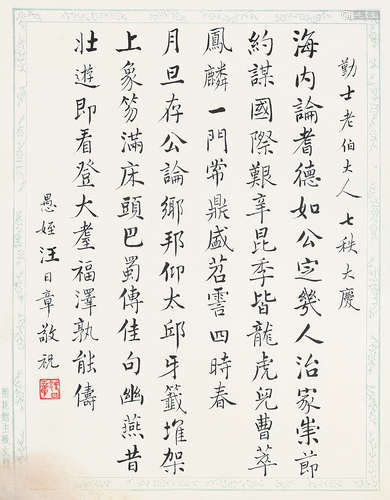 勤士老伯大人七秩大慶
海內論耆德如公定幾人治家崇節
約謀國際艱辛昆季皆龍虎兒曹萃
鳳麟一門常鼎盛苕霅四時春
月旦存公論鄉邦仰太邱牙籤堆架
上象笏滿床頭巴蜀傳佳句幽燕昔
壯遊即看登大耋福澤孰能儔
愚姪汪日章敬祝